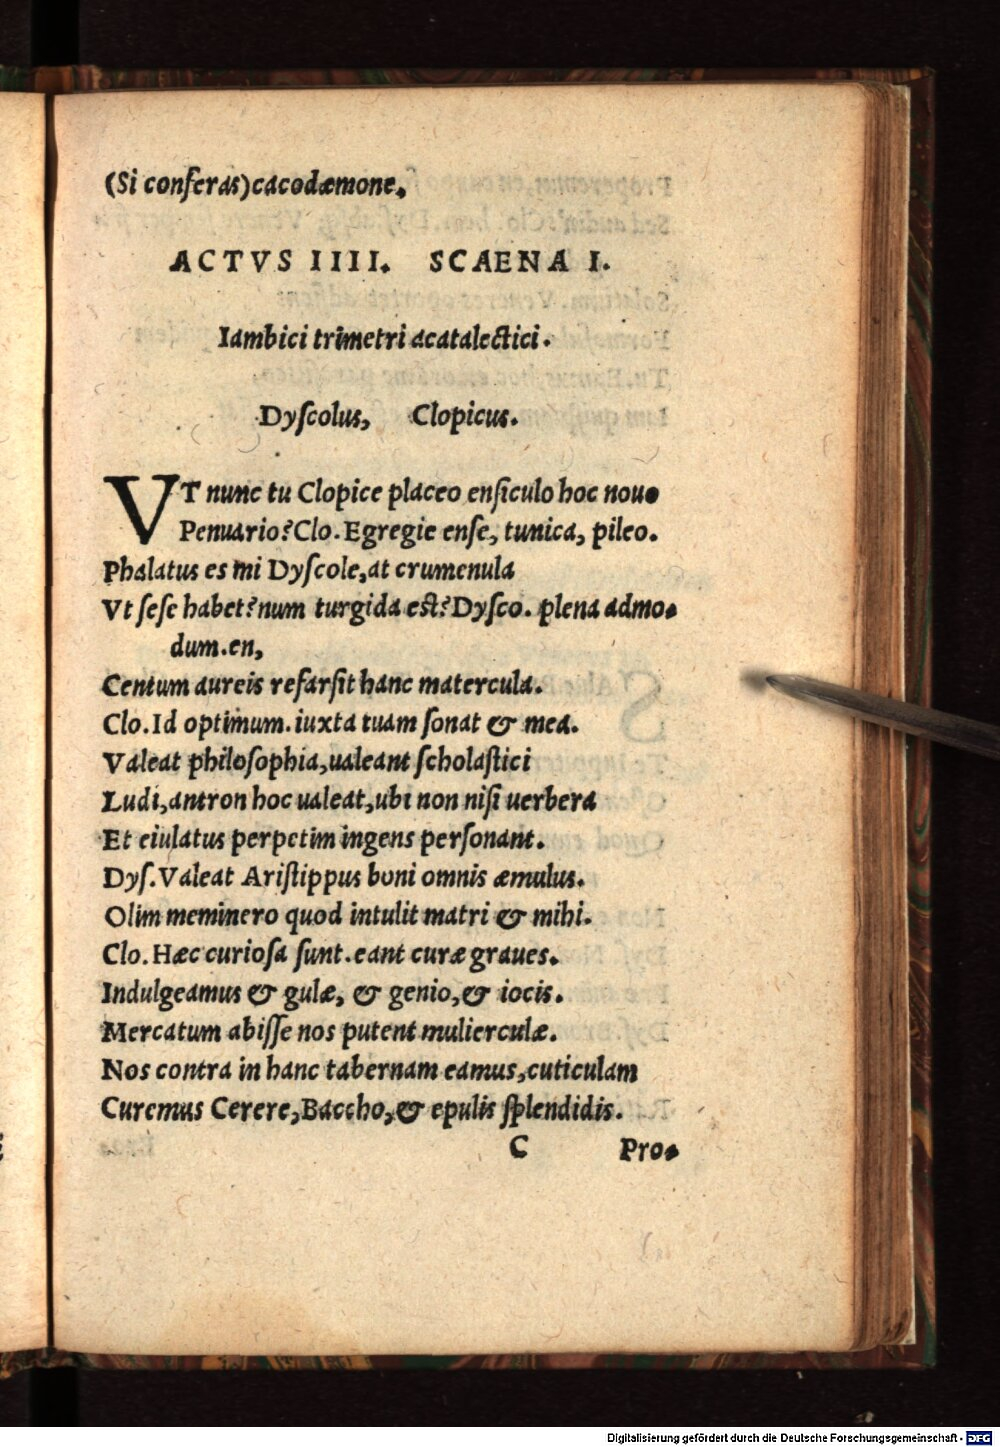 (Si conferas) cacodæmone.
ACTVS IIII. SCAENA I.
Iambici trimetri acatalectici.
Dyſcolus, Clopicus.
VT nunc tu Clopice placeo enſiculo hoc nouo
Penuario? Clo. Egregie enſe, tunica, pileo.
Phalatus es mi Dyſcole, at crumenula
Vt ſeſe habet? num turgida eſt? Dyſco. plena admo-
dum. en,
Centum aureis refarſit hanc matercula.
Clo. Id optimum. iuxta tuam ſonat & mea.
Valeat philoſophia, ualeant ſcholaſtici
Ludi, antron hoc ualeat, ubi non niſi uerbera
Et eiulatus perpetim ingens perſonant.
Dyſ. Valeat Ariſtippus boni omnis æmulus.
Olim meminero quod intulit matri & mihi.
Clo. Hæc curioſa ſunt. eant curæ graues.
Indulgeamus & gulæ, & genio, & iocis.
Mercatum abiſſe nos putent mulierculæ.
Nos contra in hanc tabernam eamus, cuticulam
Curemus Cerere, Baccho, & epulis ſplendidis.
C Pro-
Digitalisierung gefördert durch die Deutsche Forschungsgemeinschaft - DFG